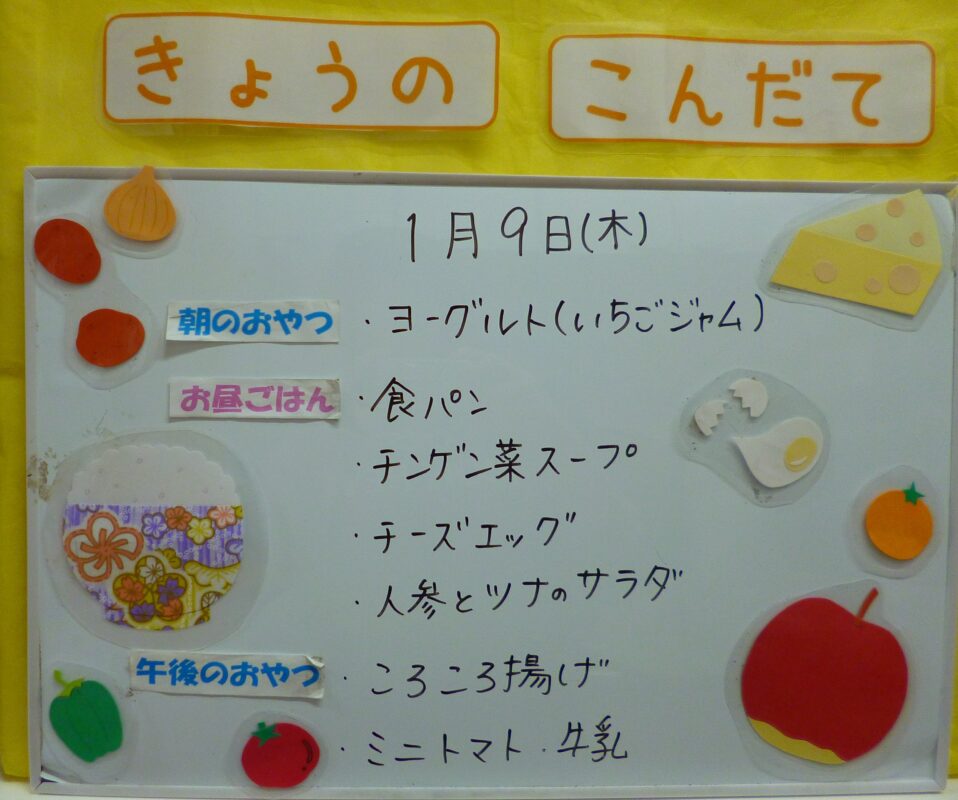 きょうの こんだて
1月9日(木)
朝のおやつ ・ヨーグルト(いちごジャム)
お昼ごはん ・食パン
・チンゲン菜スープ
・チーズエッグ
・人参とツナのサラダ
午後のおやつ ・ころころ揚げ
・ミニトマト・牛乳